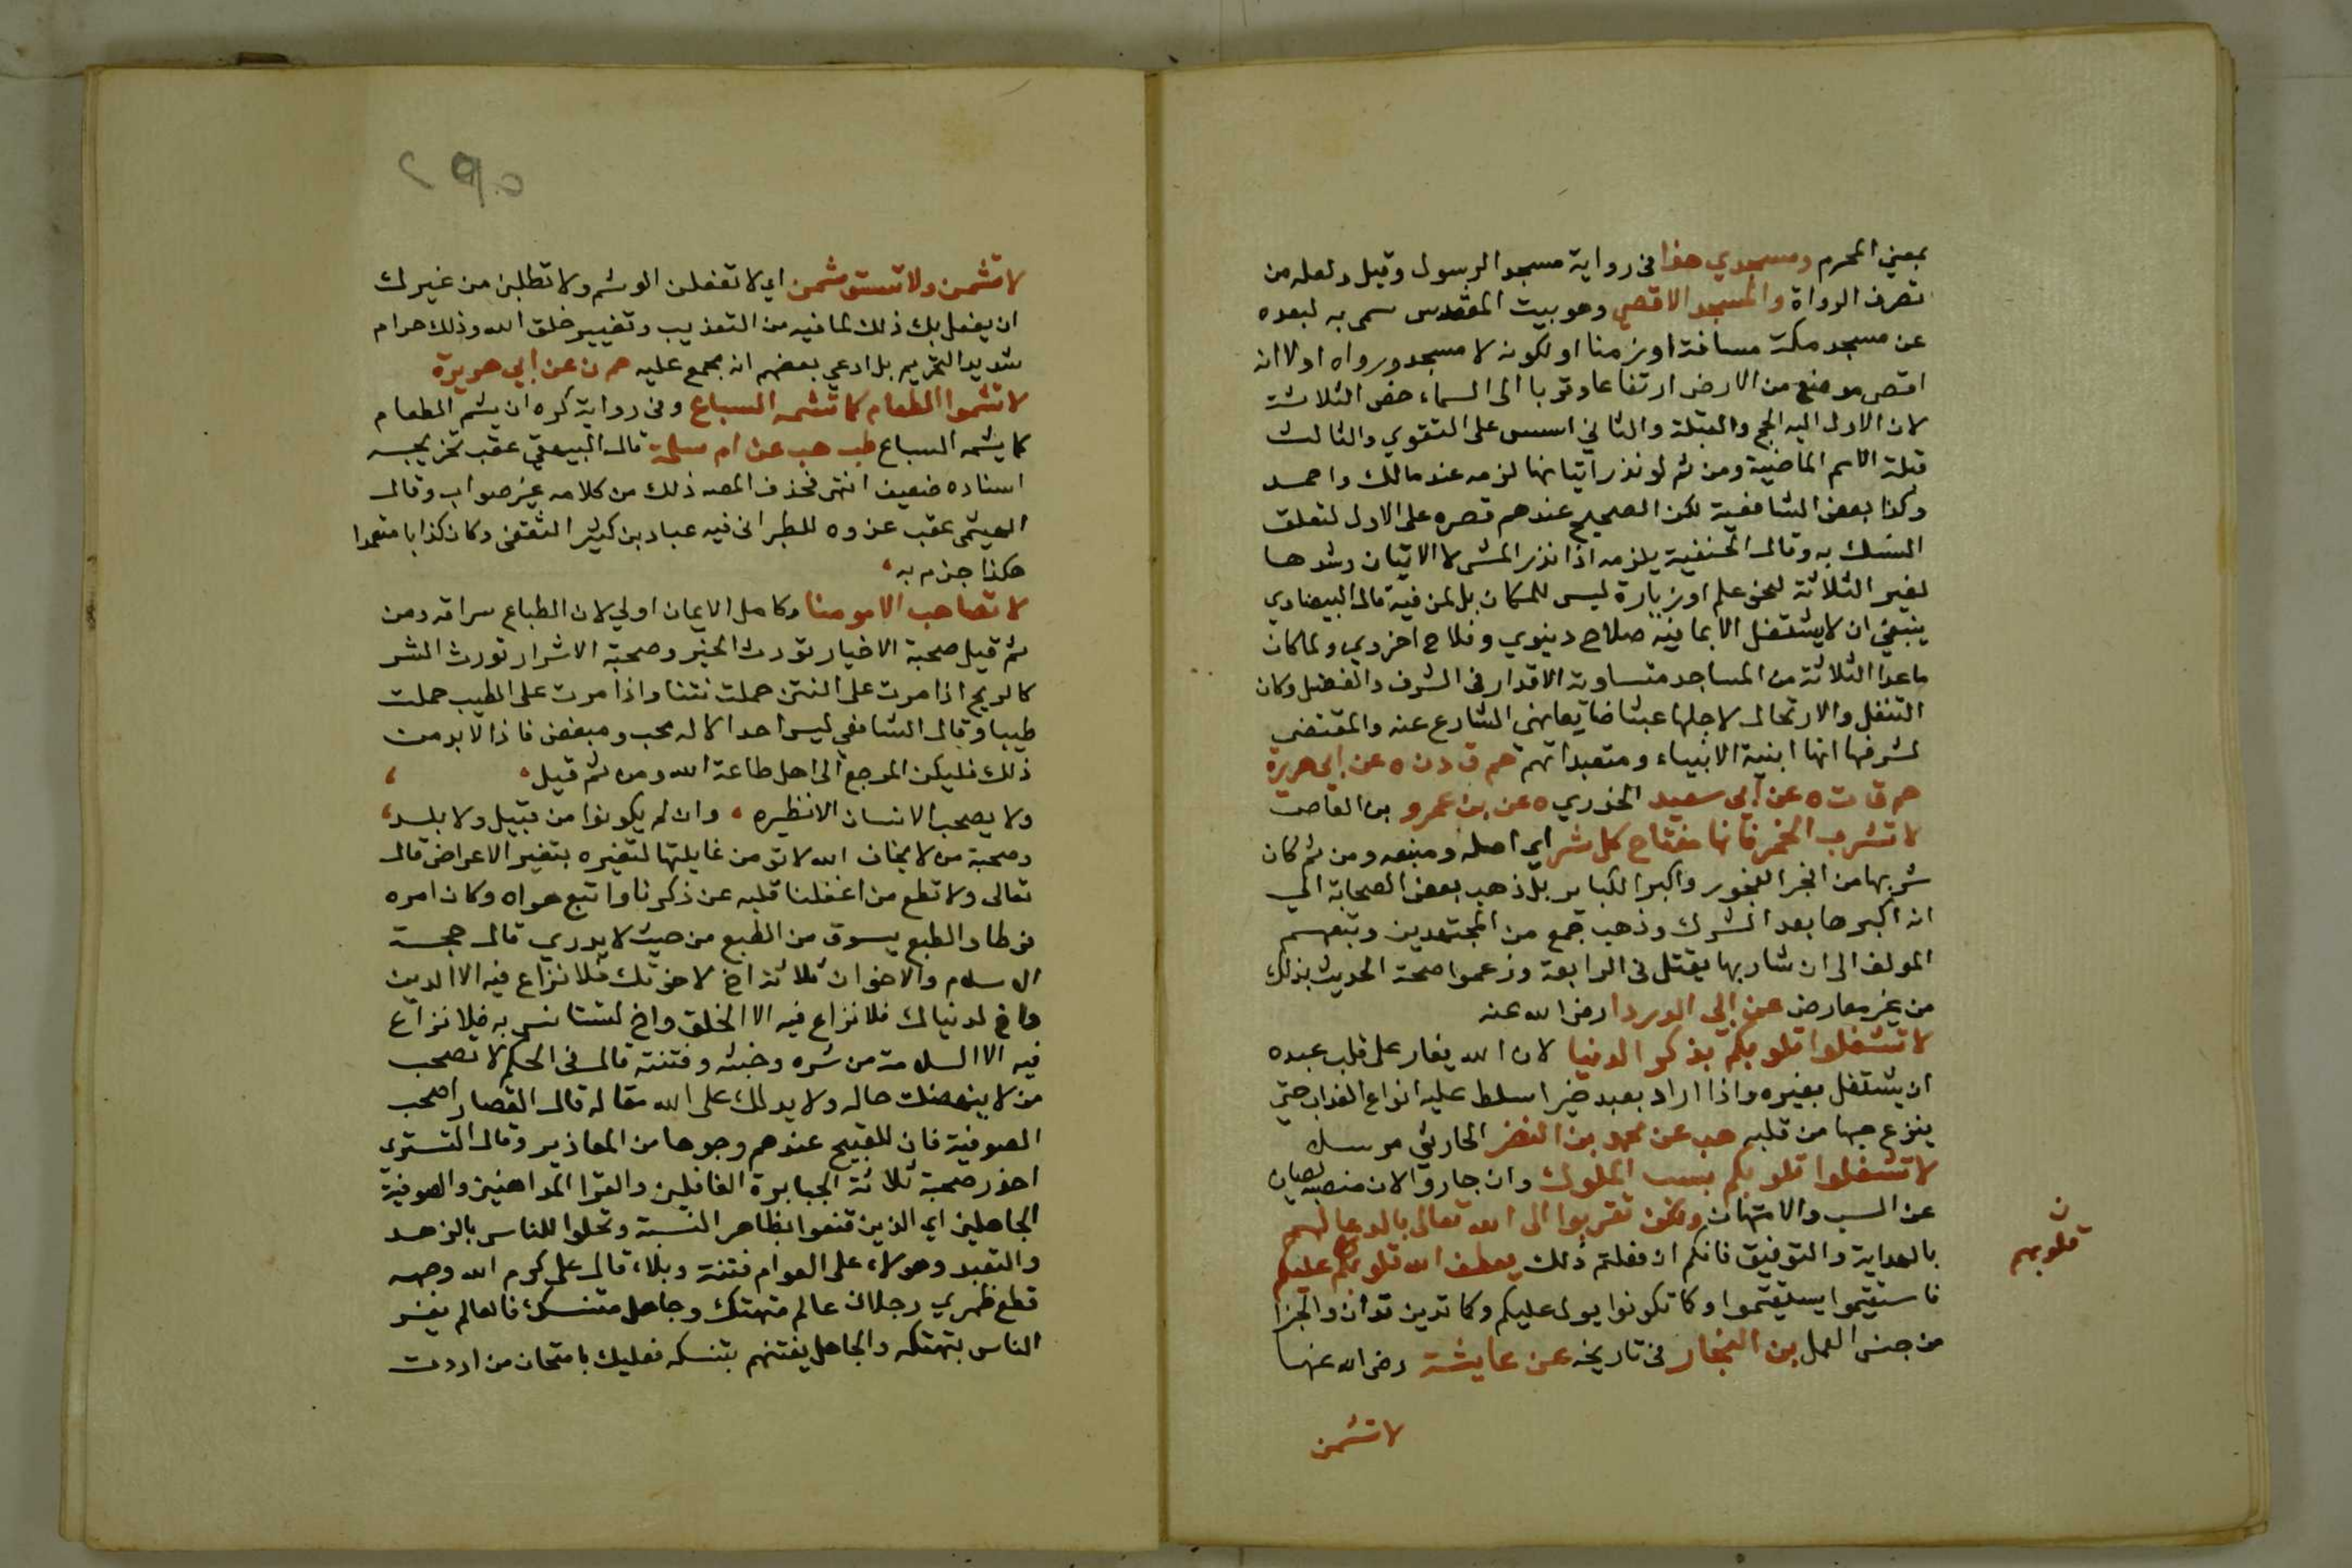 بمعني المحرم ومسجدي هذا في رواية مسجد الرسول وقيل ولعله من
تصرف الرواة والمسجد الاقصي وهو بيت المقدس سمي به لبعده
عن مسجد مكة مسافة او زمنا او لكونه لا مسجد وراه او لا انه
اقصى موضع من الارض ارتفاعا وقربا الى السماء خص الثلاثة
لان الاول اليه الحج والقبلة والثاني اسس على التقوي والثالث
قبلة الامم الماضية ومن ثم لو نذر اتيانها لزمه عند مالك واحمد
وكذا بعض الشافعية لكن الصحيح عندهم قصره على الاول لتعلق
النسك به وقال الحنفية يلزمه اذا نذر المشى لا الاتيان وشدها
لغير الثلاثة لنحو علم او زيارة ليس للمكان بل لمن فيه قال البيضاوي
ينبغي ان لا يشتغل الا بما فيه صلاح دنيوي وفلاح اخروي ولما كان
ما عدا الثلاثة من المساجد متساوية الاقدار في الشرف والفضل وكان
التنقل والارتحال لاجلها عبثا ضايعا نهى الشارع عنه والمقتضى
لشرفها انها ابنية الانبياء ومتعبداتهم حم ق د ن ه عن ابي هريرة
حم ق ت ه عن ابي سعيد الخدري ه عن بن عمرو بن العاص
لا تشرب الخمر فانها مفتاح كل شر اي اصله ومنبعه ومن ثم كان
شربها من افجر الفجور واكبر الكباير بل ذهب بعض الصحابة الي
انه اكبرها بعد الشرك وذهب جمع من المجتهدين وتبعهم
المولف الى ان شاربها يقتل في الرابعة وزعموا صحة الحديث بذلك
من غير معارض عن ابي الدرداء رضي الله عنه
لا تشغلوا قلوبكم بذكر الدنيا لان الله يغار على قلب عبده
ان يشتغل بغيره واذا اراد بعبد خيرا سلط عليه انواع العذاب حتي
ينزع حبها من قلبه هب عن محمد بن النضر الحارثي مرسل
لا تشغلوا قلوبكم بسب الملوك وان جاروا لان منصبهم يصان
عن السب والامتهان ولكن تقربوا الى الله تعالى بالدعا لهم
بالهداية والتوفيق فانكم ان فعلتم ذلك يعطف الله قلوبكم عليكم
ن
قلوبهم
فاستقيموا يستقيموا وكما تكونوا يولى عليكم وكما تدين تدان والجزا
من جنس العمل بن النجار في تاريخه عن عايشة رضي الله عنها
لا تشمن
لا تشمن ولا تستوشمن اي لا تفعلن الوشم ولا تطلبن من غيرك
ان يفعل بك ذلك لما فيه من التعذيب وتغيير خلق الله وذلك حرام
شديد التحريم بل ادعي بعضهم انه مجمع عليه حم ن عن ابي هريرة
لا تشموا الطعام كما تشمه السباع وفي رواية كره ان يشم الطعام
كما يشمه السباع طب هب عن ام سلمة قال البيهقي عقب تخريجه
اسناده ضعيف انتهى فحذف المصه ذلك من كلامه غير صواب وقال
الهيثمى عقب عزوه للطبراني فيه عباد بن كثير الثقفي وكان كذابا متعمدا
هكذا جزم به
لا تصاحب الا مومنا وكامل الايمان اولي لان الطباع سراقه ومن
ثم قيل صحبة الاخيار تورث الخير وصحبة الاشرار تورث الشر
كالريح اذا مرت على النتن حملت نتنا واذا مرت على الطيب حملت
طيبا وقال الشافعي ليس احد الا له محب ومبغض فاذا لا بد من
ذلك فليكن المرجع الى اهل طاعة الله ومن ثم قيل
ولا يصحب الانسان الا نظيره وان لم يكونوا من قبيل ولا بلد
وصحبة من لا يخاف الله لا تومن غايلتها لتغيره بتغير الاعراض قال
تعالى ولا تطع من اغفلنا قلبه عن ذكرنا واتبع هواه وكان امره
فرطا والطبع يسرق من الطبع من حيث لا يدري قال حجة
الاسلام والاخوان ثلاثة اخ لاخرتك فلا نزاع فيه الا الدين
واخ لدنياك فلا نزاع فيه الا الخلق واخ لتستانس به فلا نزاع
فيه الا السلامة من شره وخبثه وفتنته قال في الحكم لا تصحب
من لا ينهضك حاله ولا يدلك على الله مقاله قال القصار اصحب
الصوفية فان للقبيح عندهم وجوها من المعاذير وقال التستري
احذر صحبة ثلاثة الجبابرة الغافلين والقرا المداهنين والصوفية
الجاهلين اي الذين قنعوا بظاهر النسبة وتحلوا للناس بالزهد
والتعبد وهولاء على العوام فتنة وبلاء قال علي كرم الله وجهه
قطع ظهري رجلان عالم متهتك وجاهل متنسك فالعالم يغر
الناس بتهتكه والجاهل يفتنهم بتنسكه فعليك بامتحان من اردت